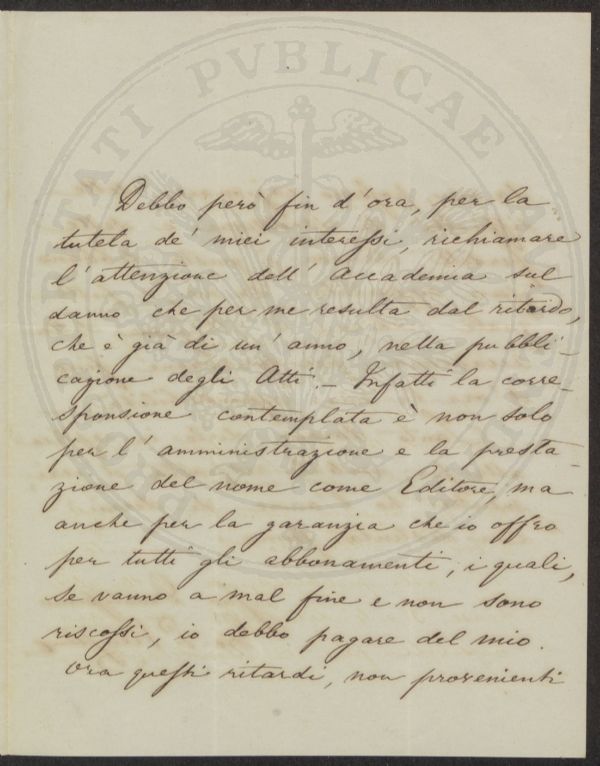 Debbo però fin d'ora, per la
tutela de' miei interessi, richiamare
l'attenzione dell'Accademia sul
danno che per me resulta dal ritardo,
che è già di un'anno, nella pubbli-
cazione degli Atti. – Infatti la corre-
sponsione contemplata è non solo
per l'amministrazione e la presta-
zione del nome come Editore, ma
anche per la garanzia che io offro
per tutti gli abbonamenti, i quali,
se vanno a mal fine e non sono
riscossi, io debbo pagare del mio.
Ora questi ritardi, non provenienti